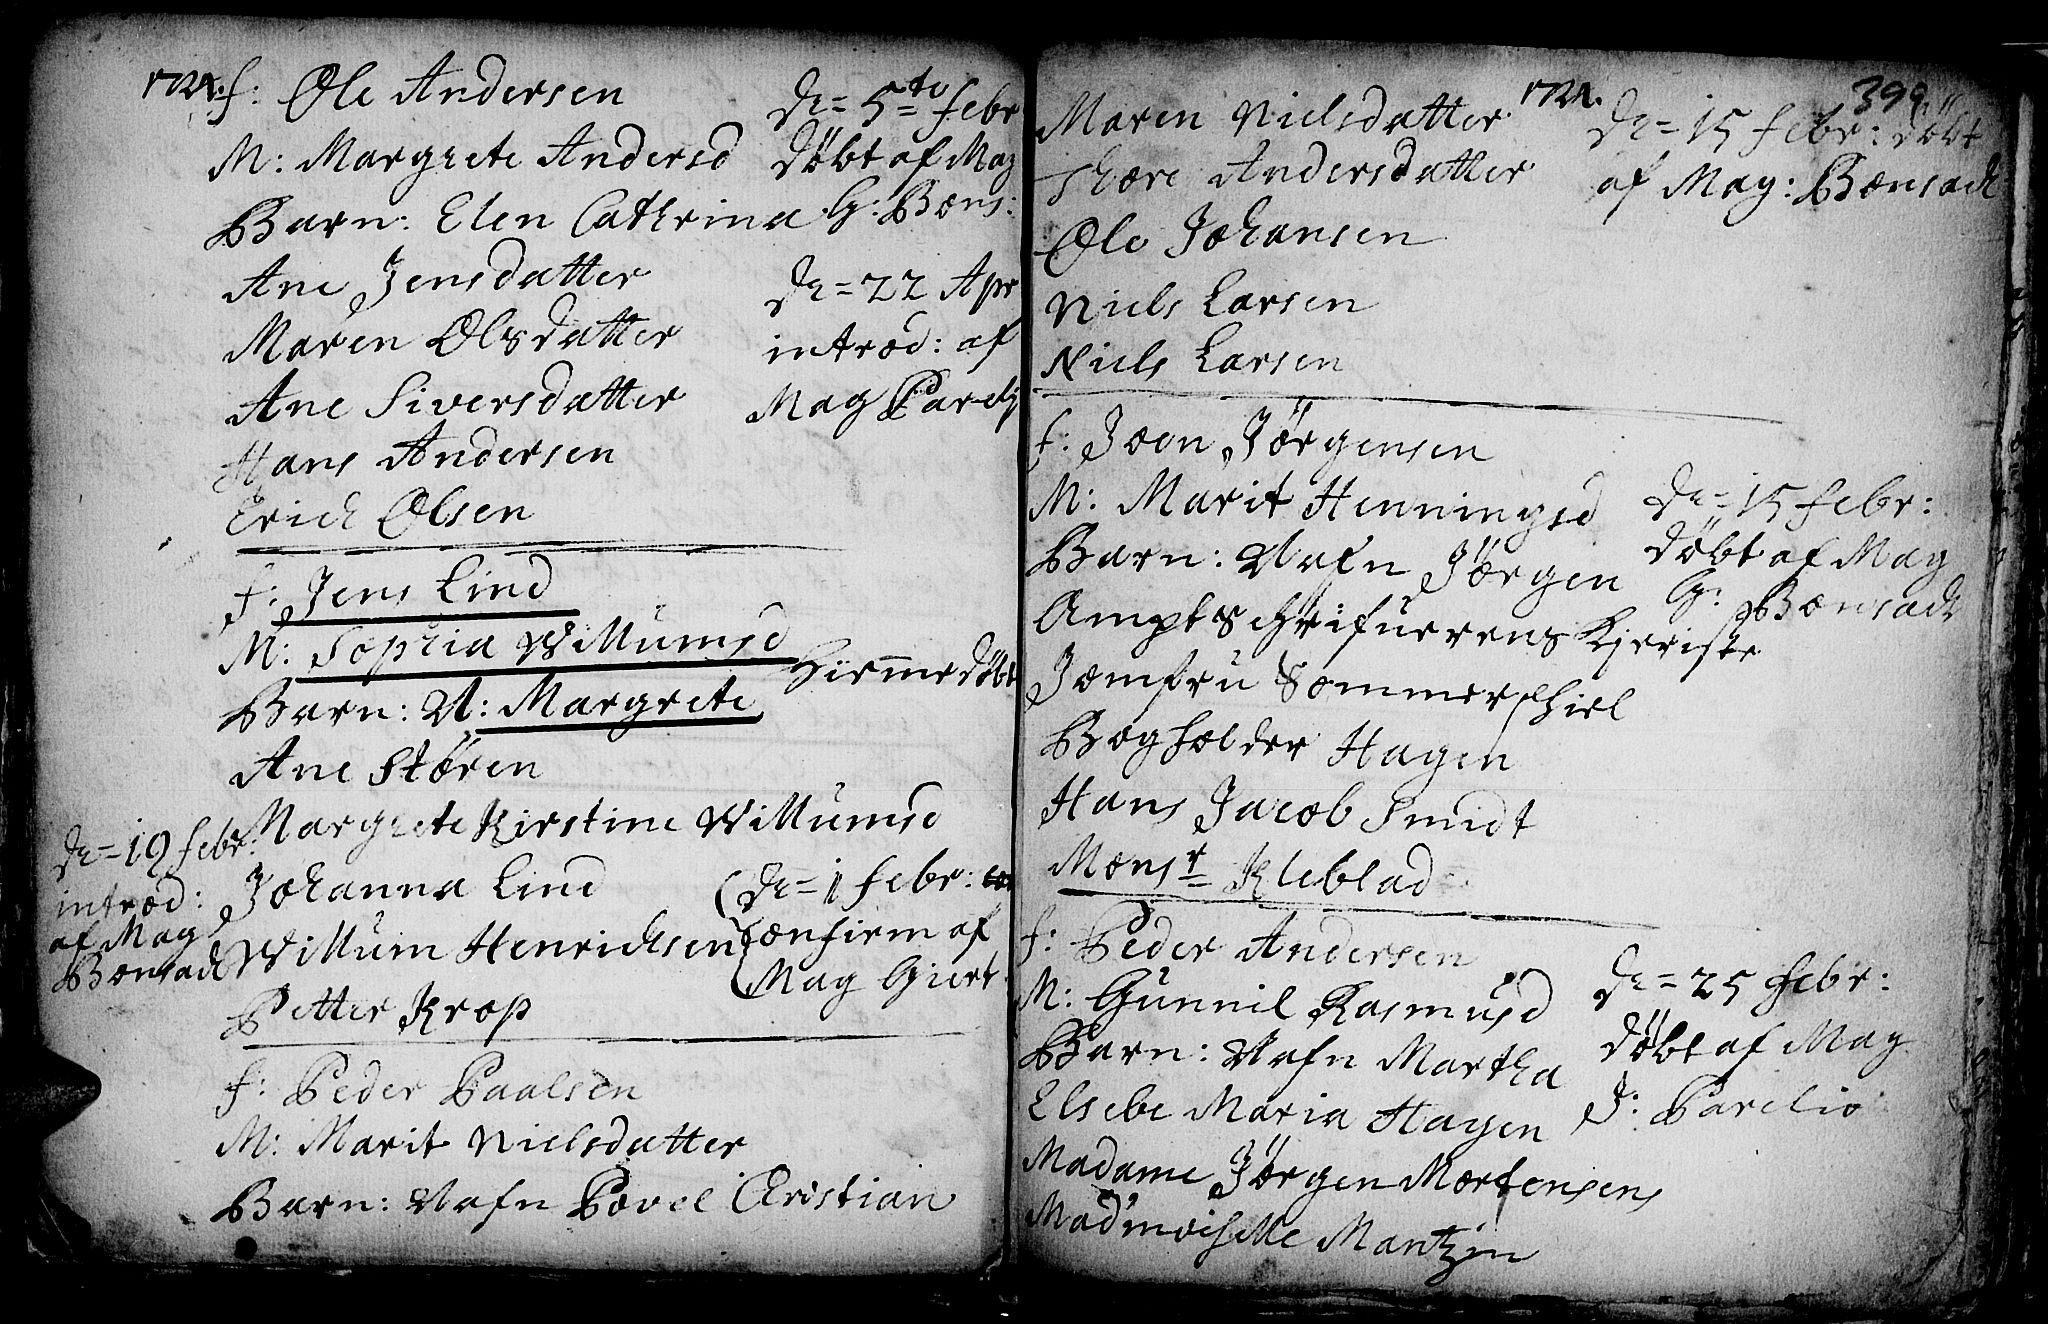 1724.
f: Ole Andersen
M: Margrete Andersd
Barn: Elen Cathrina
Ane Jensdatter
Maren Olsdatter
Ane Siversdatter
Hans Andersen
Erich Olsen
De= 5te febr
döbt af Mag
G: Bons:
De= 22 Apr
introd: af
Mag Parelj
f: Jens Lind
M: Sophia Willumsd
Barn: N: Margrete
Hiemme döbt
Ane Stören
Margrete Kirstine Willumsd
Johanna Lind
Willum Henrichsen
Petter Krop
De= 19 febr:
introd:
af Mag
Bonsach
De= 1 febr:
confirm af
Mag Giert
f: Peder Paalsen
M: Marit Nielsdatter
Barn: Nafn Povel Christian
1724.
399
Maren Nielsdatter
Thore Andersdatter
Ole Johansen
Niels Larsen
Niels Larsen
De= 15 febr: döbt
af Mag: Bonsach
f: Joen Jörgensen
M: Marit Henningsd
Barn: Nafn Jörgen
Amptschrifuerens Kjeriste
Jomfru Sommerschiel
Bogholder Hagen
Hans Jacob Smidt
Monsr Kleblad
De= 15 febr:
döbt af Mag
G: Bonsach
f: Peder Andersen
M: Gunnil Rasmusd
Barn: Nafn Martha
Elsebe Maria Hagen
Madame Jörgen Mortensens
Mad'moiselle Mantzin
De= 25 febr:
döbt af Mag
J: Parelio